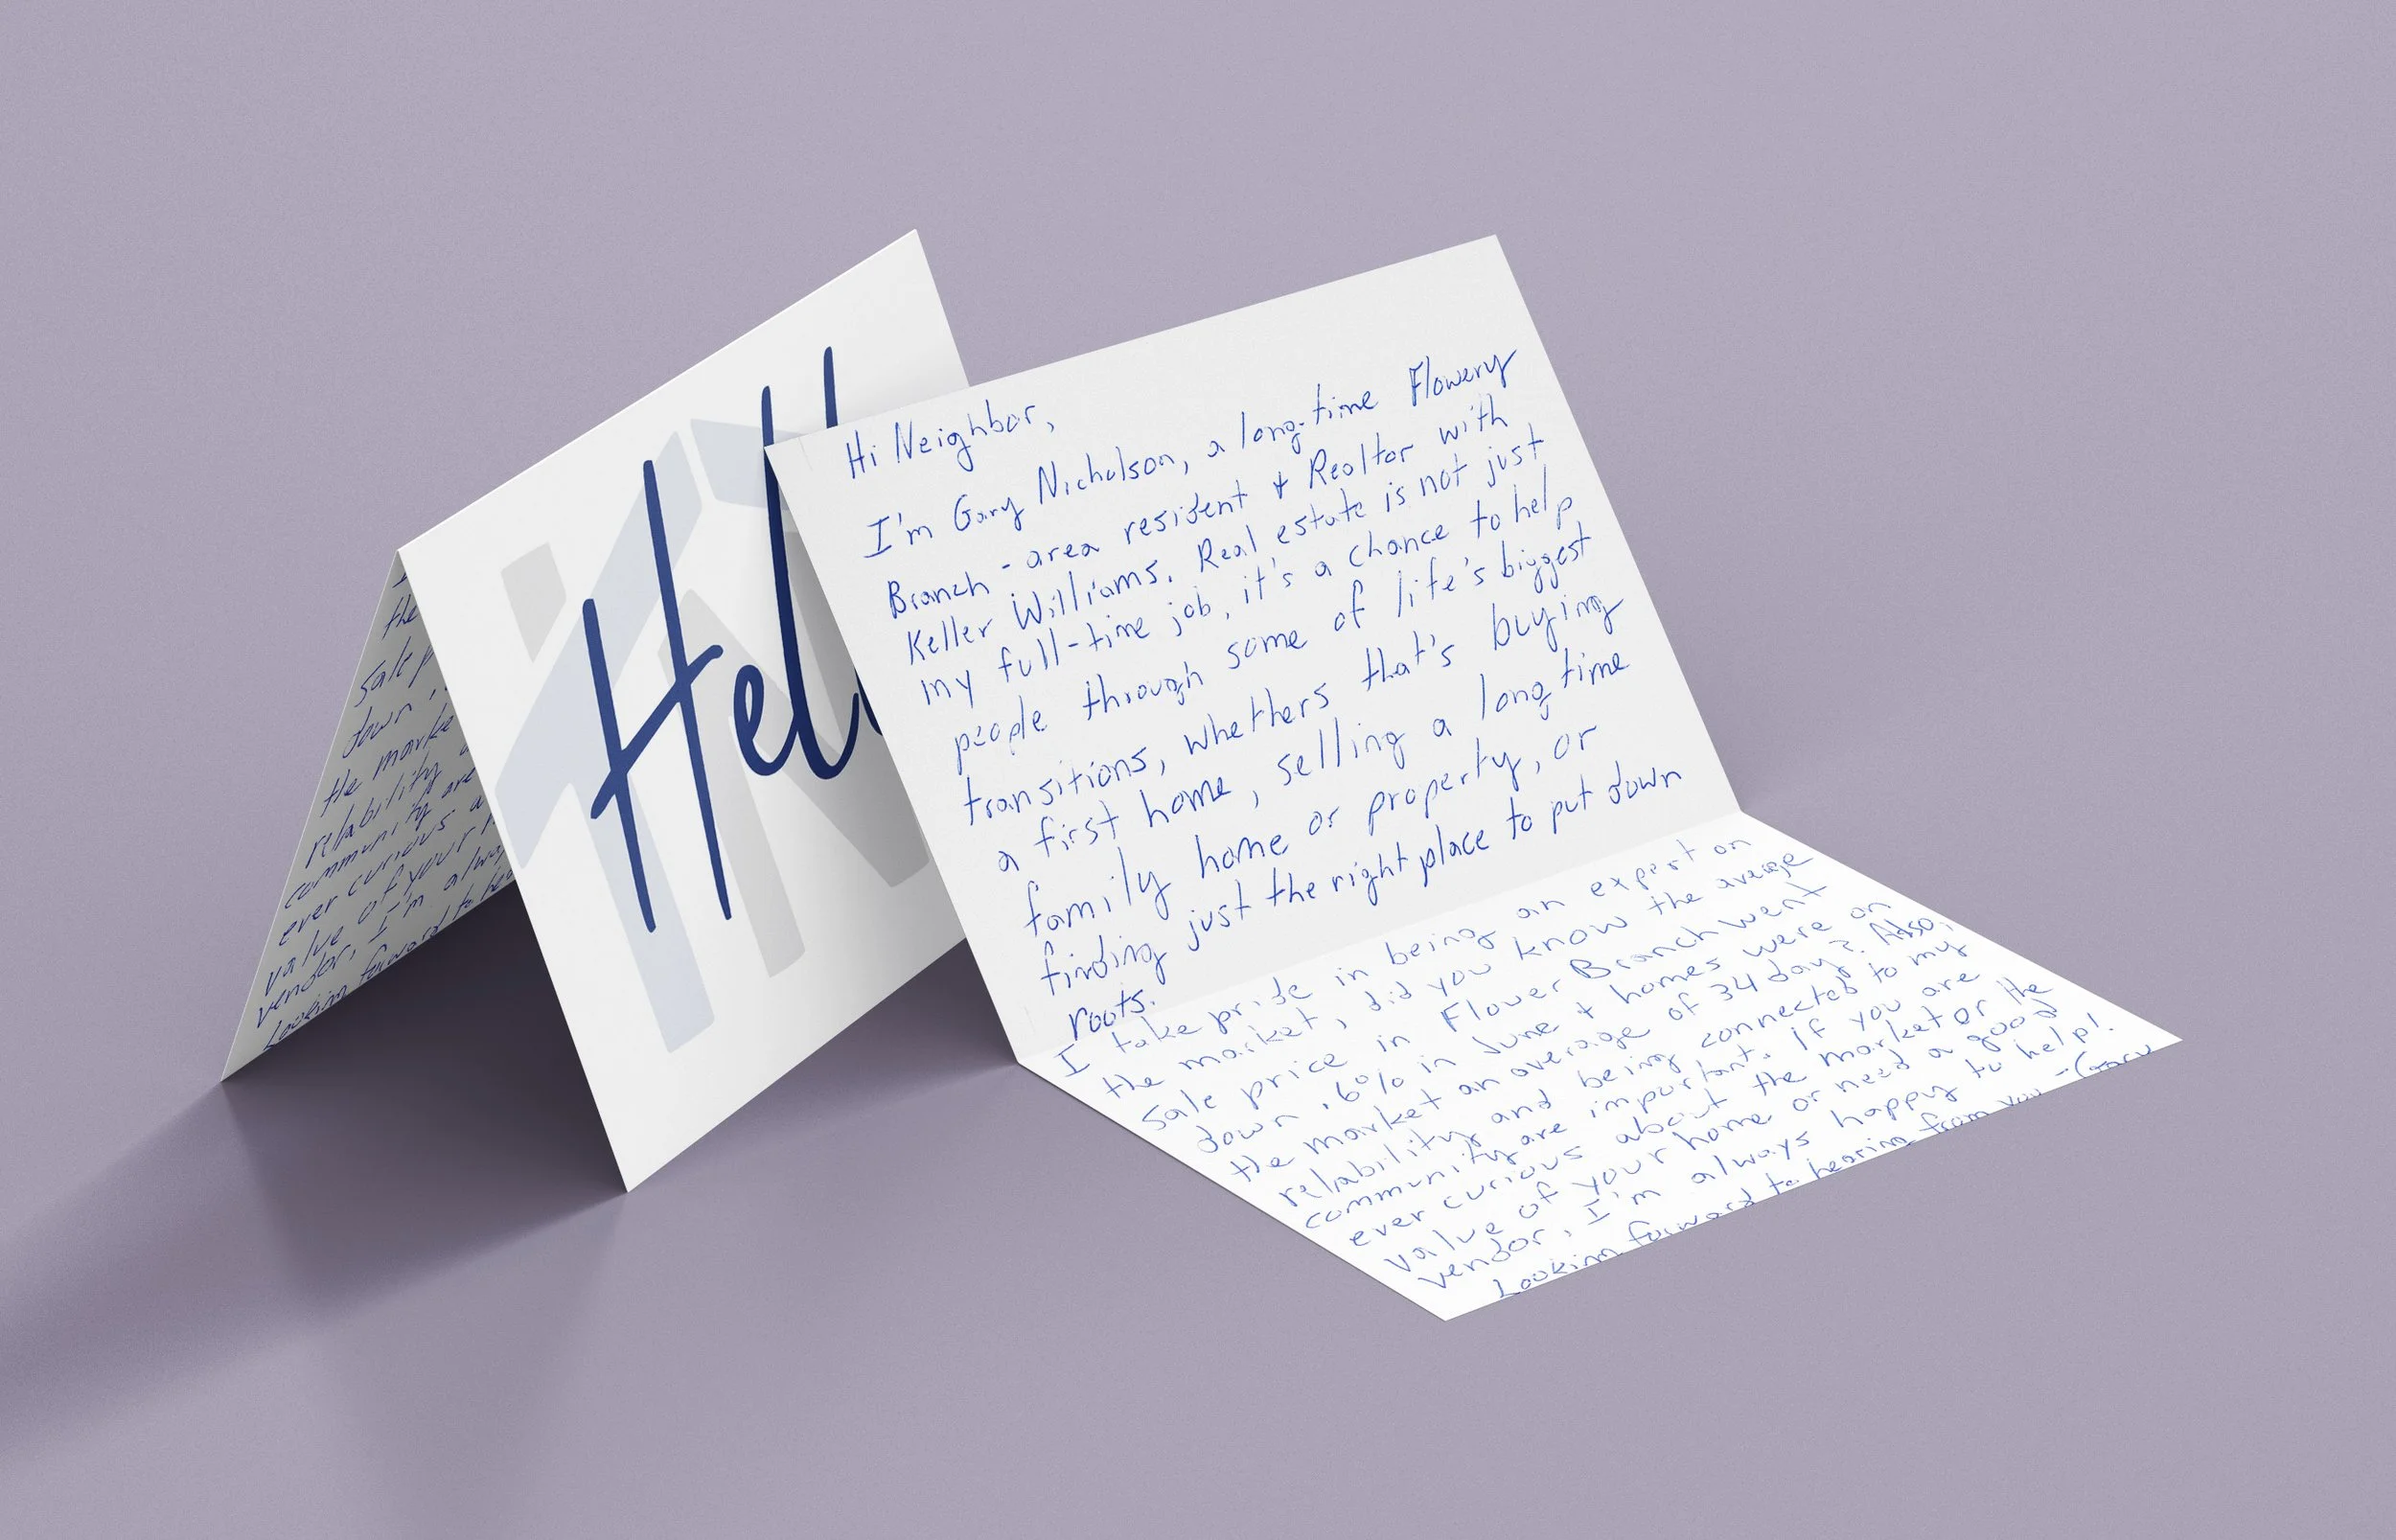 I
the
Sale p
down i
the marke
relability a
community are
ever curious a
value of your h
vendor, I'm alway
Looking forward to hea
Hell
Hi Neighbor,
I'm Gary Nicholson, a long-time Flowery
Branch - area resident + Realtor with
Keller Williams. Real estate is not just
my full-time job, it's a chance to help
people through some of life's biggest
transitions, whethers that's buying
a first home, selling a long time
family home or property, or
finding just the right place to put down
roots.
I take pride in being an expert on
the market, did you know the average
sale price in Flower Branch went
down .6% in June + homes were on
the market an average of 34 days? Also,
relability and being connected to my
community are important. If you are
ever curious about the market or the
value of your home or need a good
vendor, I'm always happy to help!
Looking forward to hearing from you -Gary